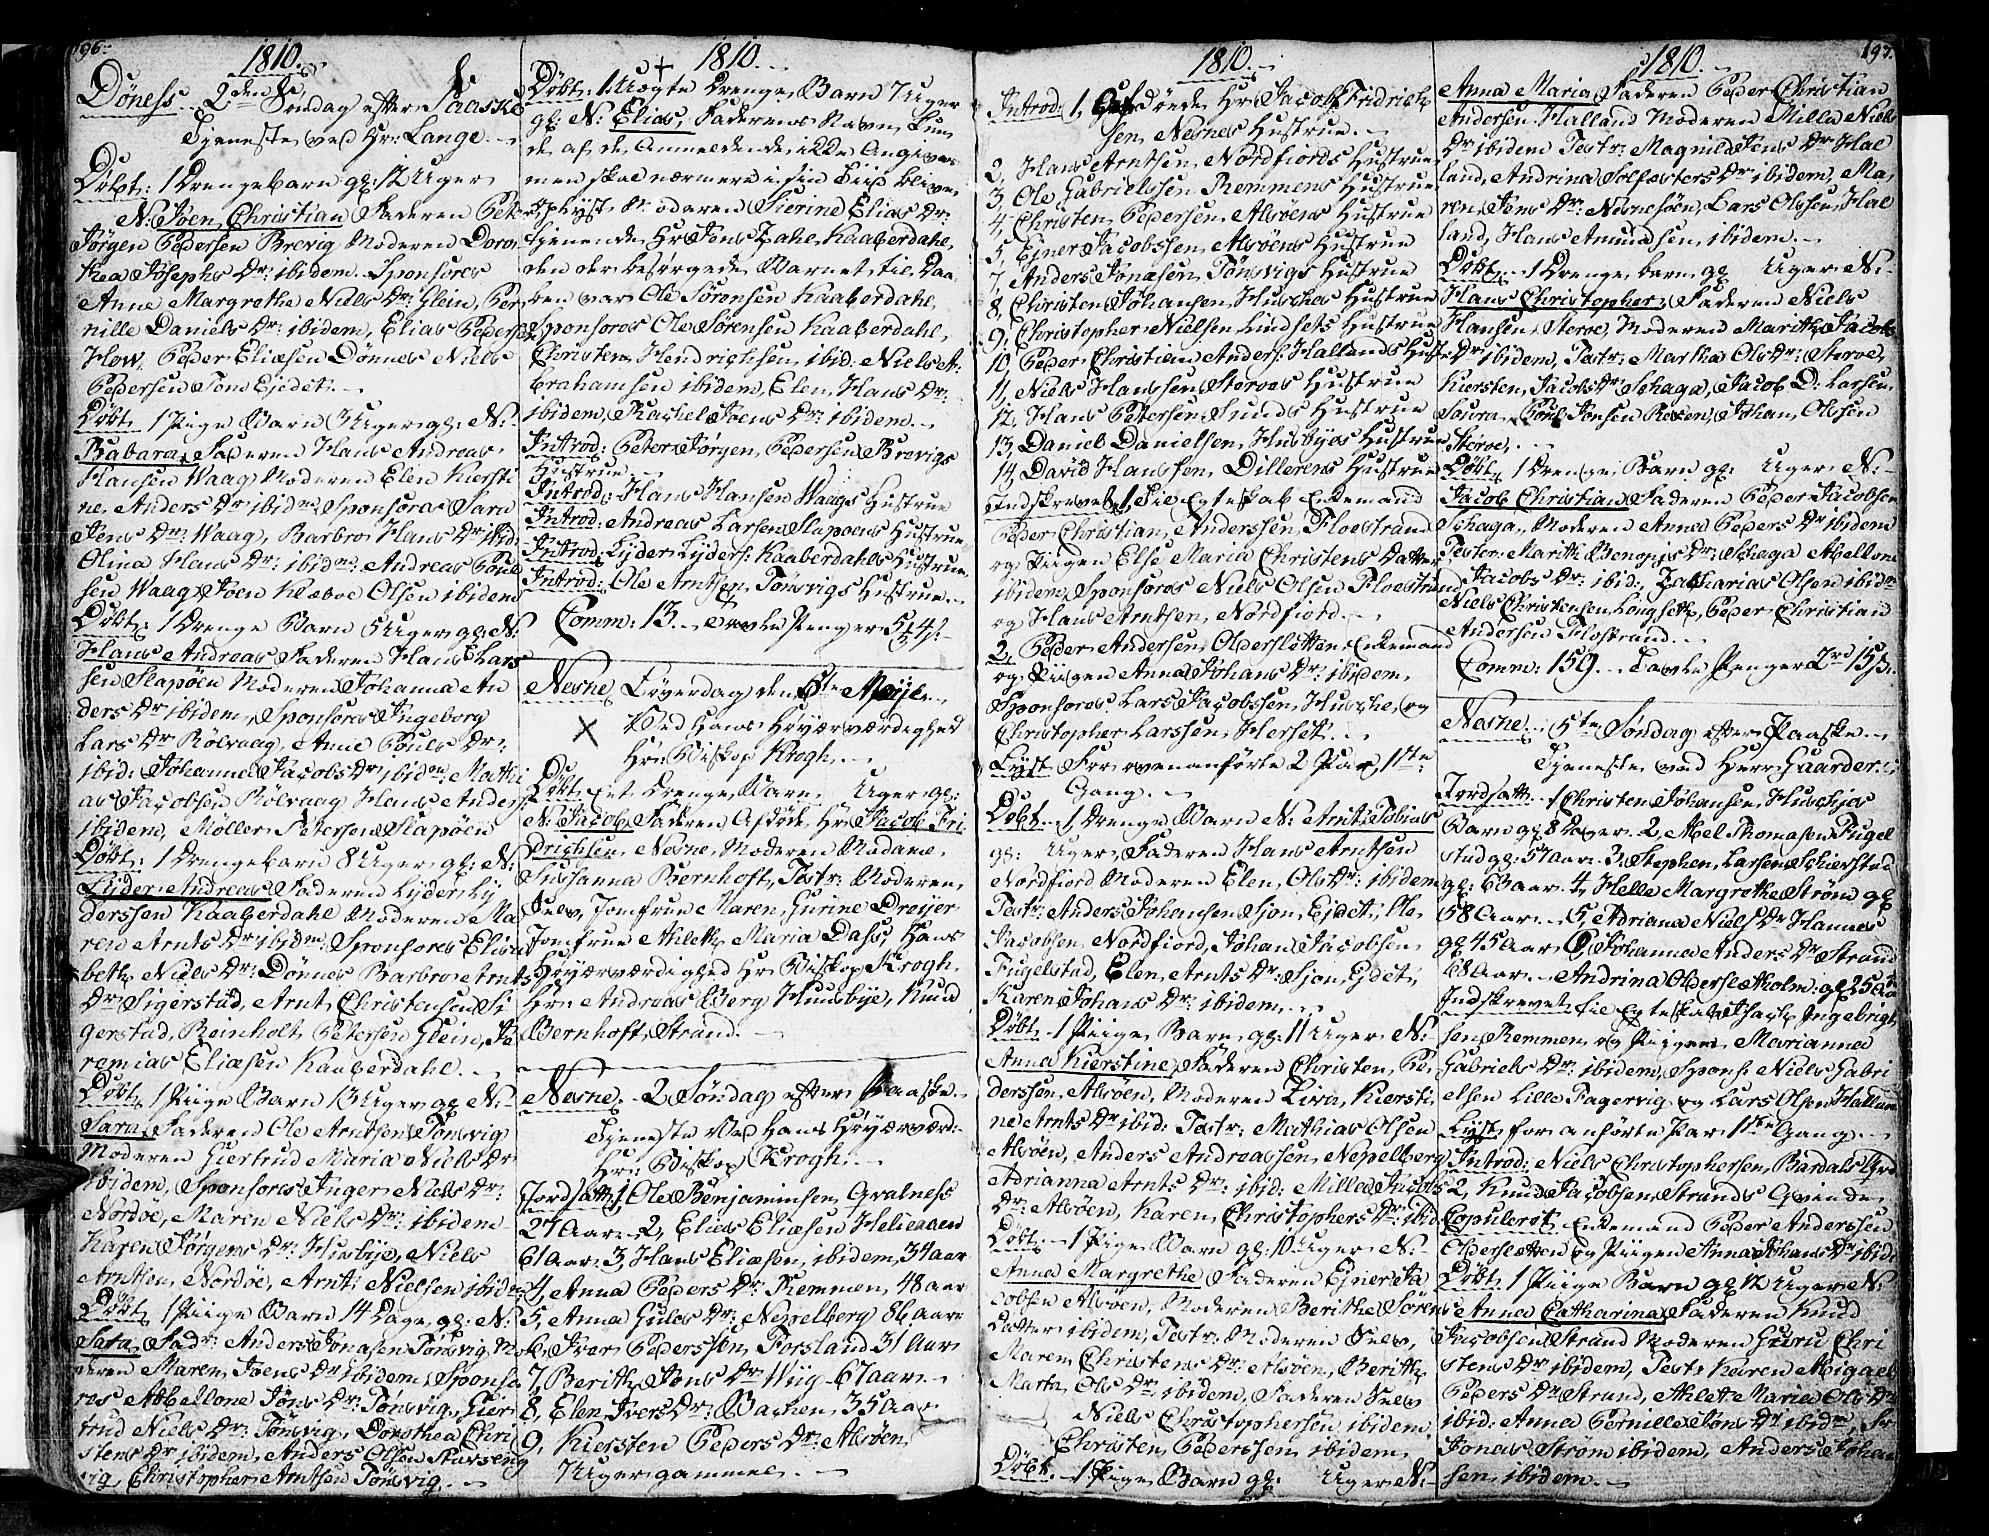 96.
1810.
Døness. 2den Søndag efter Paaske
Tjeneste ved Hr: Lange.
Døbt: 1 Drengebarn gl: 12 Uger
N: Joen Christian Faderen Peter
Jørgen Pedersen Brevig Moderen Doro
thea Josephs Dr: ibidem. Sponsores
Anne Margrethe Niels Dr: Glein, Per
nille Daniels Dr: ibidem, Elias Peders:
How, Peder Eliæsen Dønnes Niels
Pedersen Tom Ejdet.
Døbt 1 Piige Barn 3 Uger gl: N:
Babara, Faderen Hans Andreas
Hansen Waag Moderen Elen Kiersti
ne Anders Dr ibidm: Sponsores Sara
Jens Dr: Waag, Barbro Hans Dr ibid:
Olina Hans Dr: ibidm: Andreas Poul
sen Waag Joen Klæboe Olsen ibidem
Døbt: 1 Drenge Barn 5 Uger gl: N:
Hans Andreas Faderen Hans Lars
sen Slapøen Moderen Johanna An
ders Dr ibidem, Sponsores Ingeborg
Lars Dr Rølvaag, Anne Pouls Dr:
ibid: Johanna Jacobs Dr ibidm: Mathi
as Jacobsen Rølvaag Hans Anders:
ibidem, Møller Petersen Slapøen
Døbt: 1 Drengebarn 8 Uger gl: N:
Lyder Andreas Faderen Lyder Ly
derssen Kaaberdahl Moderen Ma
ren Arnts Dr ibidm: Sponsores Elisa
beth Niels Dr: Dønnes Barbro Arnts
Dr Sigerstad, Arnt Christensen Si
gerstad, Reinholt Petersen Glein, Je
remias Eliæsen Kaaberdahl.
Døbt 1 Piige Barn 13 Uger gl: N:
Sara, Faderen Ole Arntsen Tønsvig
Moderen Giertrud Maria Niels Dr
ibidem, Sponsores Inger Niels Dr:
Nordøe, Maren Niels Dr: ibidem
Karen Jørgens Dr: Husbye, Niels
Arntsen, Nordøe, Arnt Nielsen ibidem
Døbt 1 Piige Barn 14 Dage gl: N:
Sara, Fadr: Anders Jonasen Tønsvig Mo
deren Maren Joens Dr ibidem, Sponso
res Abellone Jøns Dr: Tønsvig, Gier
trud Niels Dr: Tønsvig, Dorothea Chri
stens Dr ibidem, Anders Olsen Starseng
vig, Christopher Arntsen Tønsvig.
1810.
Døbt: 1 Uægte Drenge Barn 7 Uger
gl: N: Elias, Faderens Navn kun
de af de Anmeldende ikke Angives
men skal nærmere i sin Tiid blive
oplyst Moderen Sierine Elias Dr:
tjenende Hr Jens Zahl, Kaaberdahl,
den der besørgede Barnet til Daa
ben var Ole Sørensen Kaaberdahl,
Sponsores Ole Sørensen Kaaberdahl,
Christen Hendrichsen, ibid: Niels A:
brahamsen ibidem, Elen Hans Dr:
ibidem, Rachel Joens Dr: ibidem.
Introd: Peter Jørgen Pedersen Brevigs
Hustrue.
Introd: Hans Hansen Waags Hustrue
Introd: Andreas Larsen Slapøens Hustrue
Introd: Lyder Lyders: Kaaberdahls Hustrue
Introd: Ole Arntsen Tønsvigs Hustrue.
Comm: 13. Tavle Penger
Nesne, Løverdag den 5te Maije.
Ved Hans Høyærværdighed
Hr: Biskop Krogh.
Døbt Et Drenge Barn Uger gl:
N: Jacob Faderen Afdøde Hr Jacob Fri
drichsen Nesne, Moderen Madame
Susanna Bernhoft, Testr: Moderen
Selv, Jomfrue Maren Gurine Dreyer
Jomfrue Athlet Maria Dass, Hans
Høyærværdighed Hr: Biskop Krogh.
Hr: Andreas Berg Huusbye, Knud
Bernhoft, Strand.
Nesne. 2 Søndag efter Paaske
Tjeneste Ved Hans Høyærværd:
Hr: Biskop Krogh.
Jordsatt, 1, Ole Benjaminsen Gralness
27 Aar. 2, Elias Eliæsen
61 Aar. 3, Hans Eliæsen, ibidem, 34 aar
4, Anna Peders Dr: Remmen, 48 aar
5, Anna Dr: Neppelberg 86 aar
6, Iver Pederssen, Forsland 31 Aar
7, Berith Jons Dr: Wiig 67 aar.
8, Elen Ivers Dr: Bachen, 35 Aar
9, Kiersten Peders Dr: Alsøen,
7 Uger gammel.
1810.
Introd: 1, Døde Hr: Jacob Fridrich
sen, Nesnes Hustrue.
2, Hans Arntsen Nordfiords Hustrue
3, Ole Gabrielssen Remmens Hustrue
4, Christen Pedersen, Alsøens Hustrue
5, Ejner Jacobssen, Alsøens Hustrue
7, Anders Jonæsen, Tønsvigs Hustrue
8, Christen Johansen, Husches Hustrue
9, Christopher Nielsen Lindsets Hustrue
10, Peder Christian Anders: Hallands Hustr:
11, Niels Hanssen, Storoes Hustrue
12, Hans Petersen, Sunds Hustrue
13, Daniel Danielsen, Husbyes Hustrue
14, David Hanssen, Dillerens Hustrue
Indskrevet 1, Til Egteskab Enkemand
Peder Christian Anderssen, Floestrand
og Piigen Else Maria Christens Datter
ibidem, Sponsores Niels Olsen Floestrand
og Hans Arntsen, Nordfiord.
2, Peder Andersen, Olderslettens Enkemand
og Piigen Anna Johans Dr: ibidem.
Sponsores Lars Jacobssen, Husche, og
Christopher Larssen, Herset.
Lyst For ovenanførte 2 Par, 1ste
Gang.
Døbt 1 Drenge Barn N: Arnt Tobias
gl: Uger, Faderen Hans Arntsen
Nordfiord Moderen Elen Ols Dr: ibidem
Testr: Anders Johansen Sjon Ejdet, Ole
Jacobsen Nordfiord, Johan Jacobsen,
Fugelstad, Elen Arnts Dr: Sjon Ejdet,
Karen Johans Dr: ibidem.
Døbt 1 Piige Barn gl: 11 Uger N:
Anna Kierstine, Faderen Christen Pe
derssen, Alsøen, Moderen Zira, Kiersti
ne Arnts Dr ibid: Testr: Mathias Olsen
Alsøen, Anders Andreassen, Neppelberg
Adrianna Arnts Dr: ibid: Milla Jacobs
Dr: Alsøen, Karen Christophers Dr: ibid
Døbt 1 Pige Barn gl: 10 Uger N:
Anna Margrethe Faderen Ejner Ja
cobsen Alsøen, Moderen Berithe Sørens
Datter ibidem, Testr: Moderen Selv,
Maren Christens Dr: Alsøen, Berith
Marta, Ols Dr ibidem, Faderen Selv
Niels Christophersen ibidem,
Christen Pederssen ibidem.
Døbt 1 Pige Barn gl: Uger N:
197.
1810.
Anna Maria, Faderen Peder Christian
Andersen Halland Moderen Milla Niels
Dr ibidem Testr: Magnild Jens Dr Hal
land, Andrina Solfæsters Dr ibidem, Ma
ren Jens Dr: Nesnesøen, Lars Olssen, Hal
land, Hans Amundsen, ibidem.
Døbt 1 Drenge barn gl Uger N:
Hans Christopher, Faderen Niels
Hansen Storoe, Moderen Marith Jacobs
Dr ibidem, Testr: Martha Ols Dr: Storoe,
Kiersten, Jacobs Dr Schaga, Jacob D: Larsen
Soura, Poul Jonsen Rosen, Johan Olsen
Storoe.
Døbt 1 Drenge Barn gl: Uger N:
Jacob Christian Faderen Peder Jacobsen
Schaga, Moderen Anna Peders Dr ibidem
Testr: Marith Benonjs Dr: Schaga Abellone
Jacobs Dr: ibid:, Zacharias Olsen ibidm
Niels Christensen Longsett, Peder Christian
Andersen Flostrand.
Comm: 159. Tavle Penger 2rd 15ß:
Nesne. 5te Søndag efter Paaske.
Tjeneste ved Herr Gaarder.
Jordsatt. 1 Christen Johansen, Huschjes
Barn gl 8 Dager. 2, Abel Thomasen Fugel
stad gl: 57 aar. 3. Stephen Larsen Schierstad
gl: 63 aar. 4, Helle Margrethe Strøm gl
58 Aar. 5, Adriana Niels Dr Hamnes
gl 45 Aar 6, Johanna Anders Dr Strand
68 Aar. Andrina Olderslet Holm: gl 25 aar
Indskrevet til Egteskab Isach Ingebrigt
sen, Remmen og Piigen Marianna
Gabriels Dr: ibidem, Spons: Niels Gabri
elsen Lille Fagervig og Lars Olsen Halland
Lyst for anførte Par 1ste Gang.
Introd: Niels Christophersen, Bardals Qvd
2, Knud Jacobsen Strands Qvinde
Copuleret Enkemand Peder Anderssen
Oldersletten og Piigen Anna Johans Dr ibid:
Døbt 1 Piige Barn gl 12 Uger N:
Anna Catharina Faderen Knud
Jacobsen Strand Moderen Guru Chri
stens Dr ibidem, Test: Karen Abigael
Peders Dr Strand, Athlet Maria Ols Dr
ibid: Anna Pernille Jons Dr ibidm,
Jonas Strøm ibidem, Anders Johan
sen ibidem.